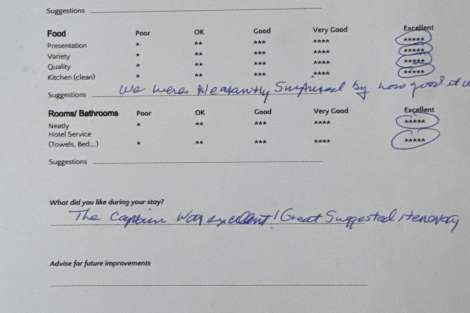 Suggestions
Food Poor OK Good Very Good Excellent
Presentation * ** *** **** *****
Variety * ** *** **** *****
Quality * ** *** **** *****
Kitchen (clean) * ** *** **** *****
Suggestions We were Pleasantly Surprised by how good it w
Rooms/ Bathrooms Poor OK Good Very Good Excellent
Neatly * ** *** **** *****
Hotel Service
(Towels, Bed...) * ** *** **** *****
Suggestions
What did you like during your stay?
The Captain Was excellent! Great Suggested itenerary
Advise for future improvements